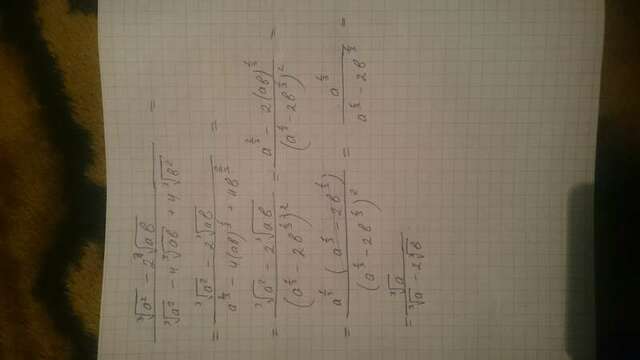 ∛a² - 2∛ab / ∛a² - 4∛ab + 4∛b² =
= ∛a² - 2∛ab / a^⅔ - 4(ab)^⅓ + 4b^⅔ =
= ∛a² - 2∛ab / (a^⅓ - 2b^⅓)² = a^⅔ - 2(ab)^⅓ / (a^⅓ - 2b^⅓)² =
= a^⅓ (a^⅓ - 2b^⅓) / (a^⅓ - 2b^⅓)² = a^⅓ / a^⅓ - 2b^⅓ =
= ∛a / ∛a - 2∛b